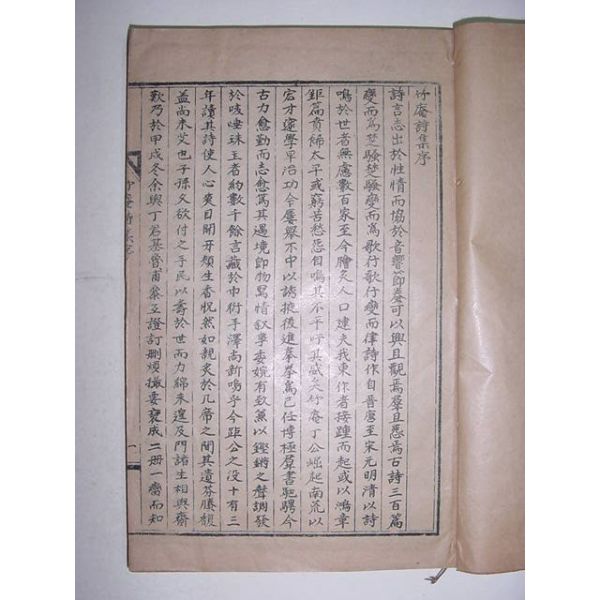 竹庵詩集序
詩言志出於性情而協於音響節奏可以興且觀焉羣且怨焉古詩三百篇
變而為楚騷楚騷變而為歌行歌行變而律詩作自晋唐至宋元明清以詩
鳴於世者無慮數百家至今膾炙人口逮夫我東作者接踵而起或以鴻章
鉅篇賁餙太平或窮苦愁怨自鳴其不平吁其盛矣竹庵丁公崛起南荒以
宏才邃學早治功令屢擧不中以誘掖後進拳拳為己任博極羣書馳騁今
古力愈勤而志愈篤其遇境節物寫情叙事委婉有致兼以鏗鏘之聲調發
於咳唾珠玉者約數千餘言藏於巾衍手澤尚新嗚乎今距公之没十有三
年讀其詩使人心爽目開牙頰生香怳然如親炙於几席之間其遺芬賸馥
益尚未艾也子孫又欲付之手民以壽於世而力綿未遑及門諸生相與齎
歎乃於甲戌冬余與丁君基魯甫纂互證訂删煩撮要裒成二册一臠而知
竹庵詩集序
一